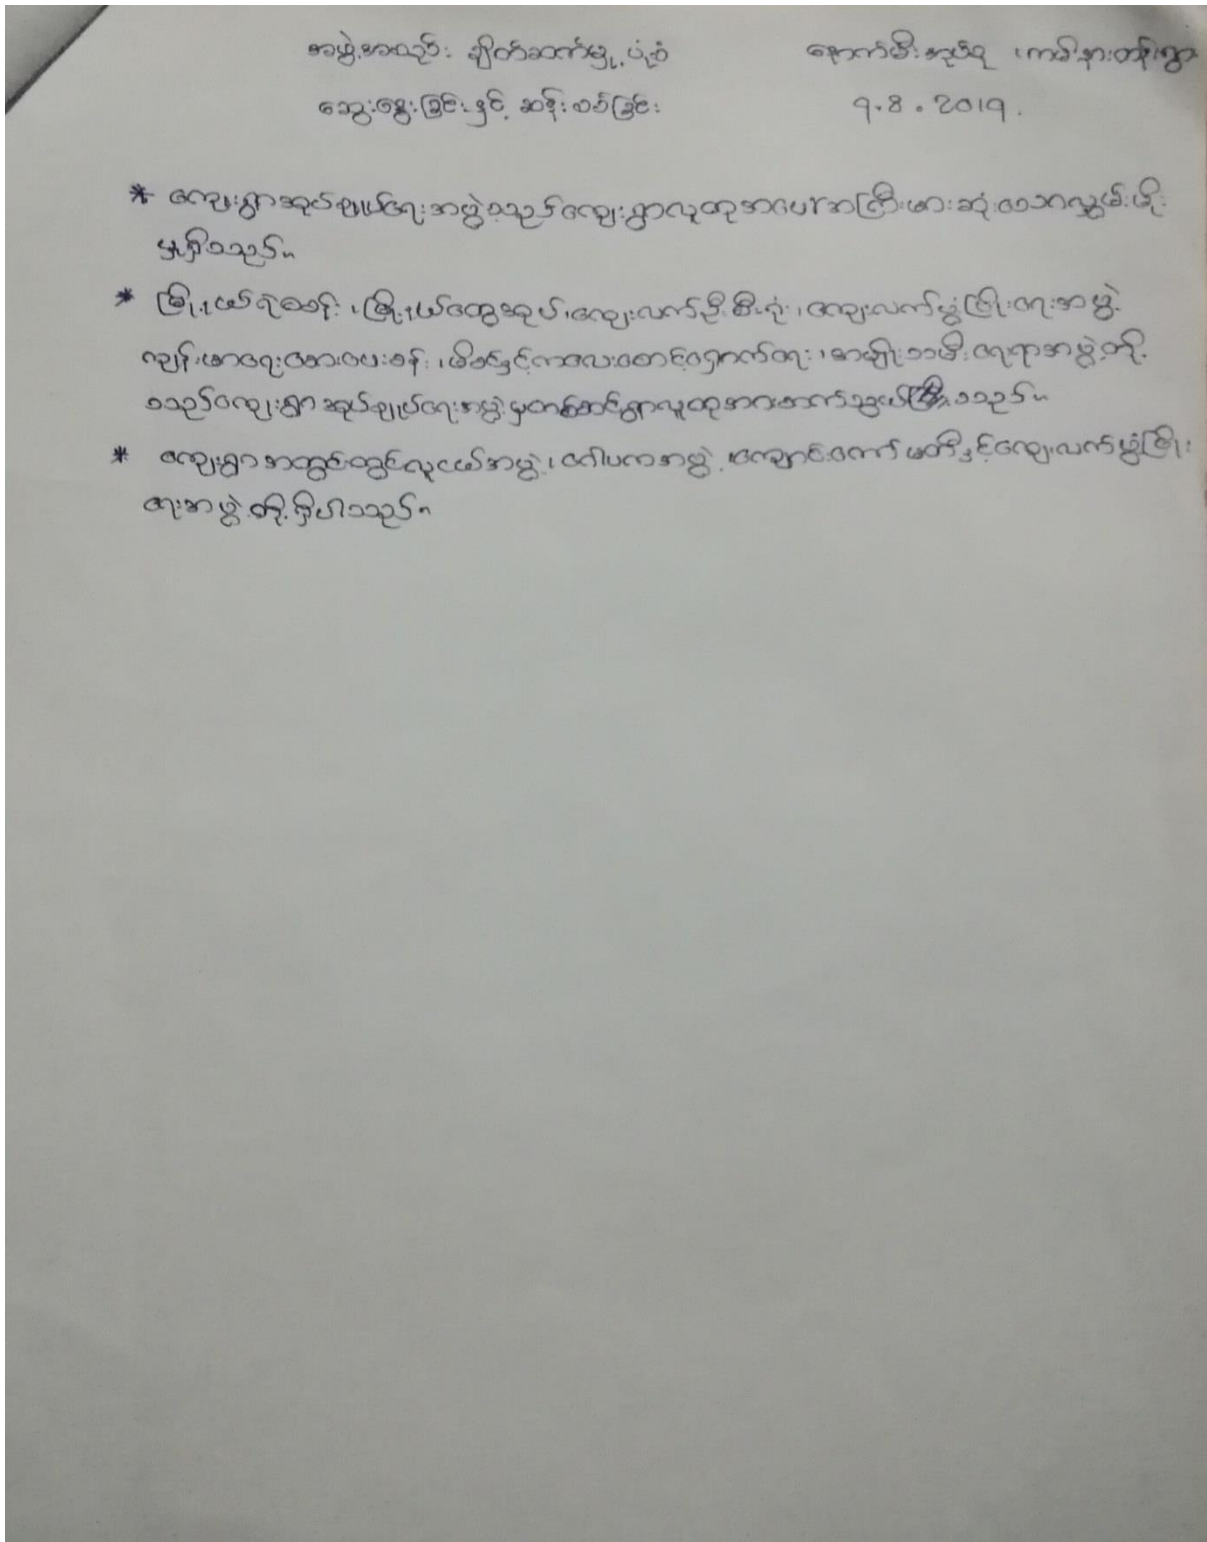 အဖွဲ့အစည်း ချိတ်ဆက်မှု ပုံစံ နောက်မီးအုပ်စု ၊ကမ်းနားတန်းရွာ
ဆွေးနွေးခြင်းနှင့် ဆန်းစစ်ခြင်း ၇.8.2019.
* ကျေးရွာအုပ်ချုပ်ရေးအဖွဲ့သည်ကျေးရွာလူထုအပေါ်အကြီးမားဆုံးသြဇာလွှမ်းမိုး
မှုရှိသည်။
* မြို့နယ်ရဲစခန်း၊မြို့နယ်ထွေအုပ်၊ကျေးလက်ဦးစီးရုံး၊ကျေးလက်ဖွံ့ဖြိုးရေးအဖွဲ့
ကျန်းမာရေးဆေးပေးခန်း၊မိခင်နှင့်ကလေးစောင့်ရှောက်ရေး၊အမျိုးသမီးရေးရာအဖွဲ့တို့
သည်ကျေးရွာအုပ်ချုပ်ရေးအဖွဲ့မှတစ်ဆင့်ရွာလူထုအားဆက်သွယ်သည်။
* ကျေးရွာအတွင်းတွင်လူငယ်အဖွဲ့၊ဂေါပကအဖွဲ့၊ကျောင်းကော်မတီနှင့်ကျေးလက်ဖွံ့ဖြိုး
ရေးအဖွဲ့တို့ရှိပါသည်။